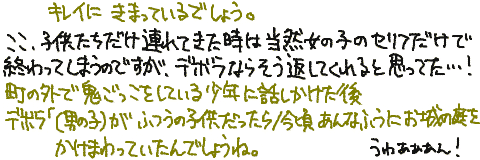 キレイに きまっているでしょう。
ここ、子供たちだけ連れてきた時は当然女の子のセリフだけで
終わってしまうのですが、デボラならそう返してくれると思ってた…!
町の外で鬼ごっこをしている少年に話しかけた後
デボラ「(男の子)が ふつうの子供だったら/今頃 あんなふうに お城の庭を
かけまわっていたんでしょうね。 うわああぁん!